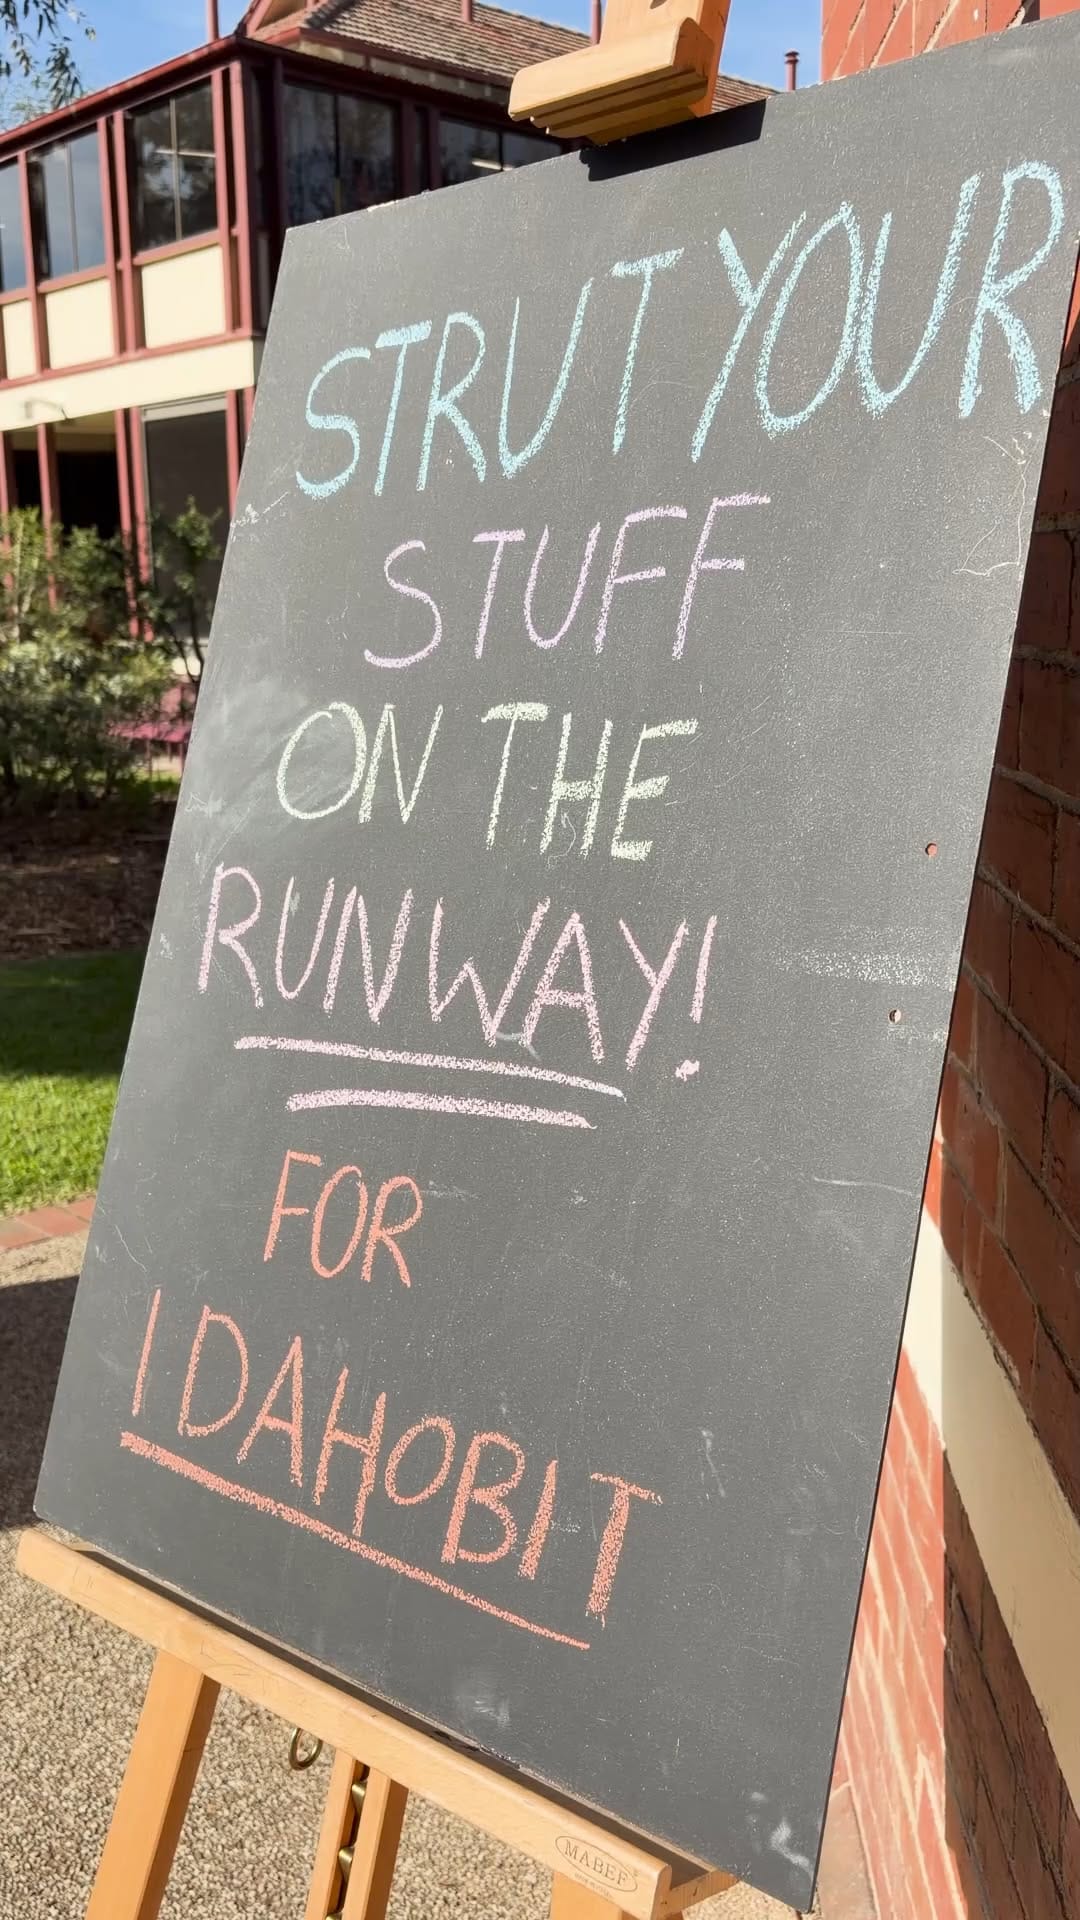 STRUT YOUR
STUFF
ON THE
RUNWAY!
FOR
IDAHOBIT
MABEF